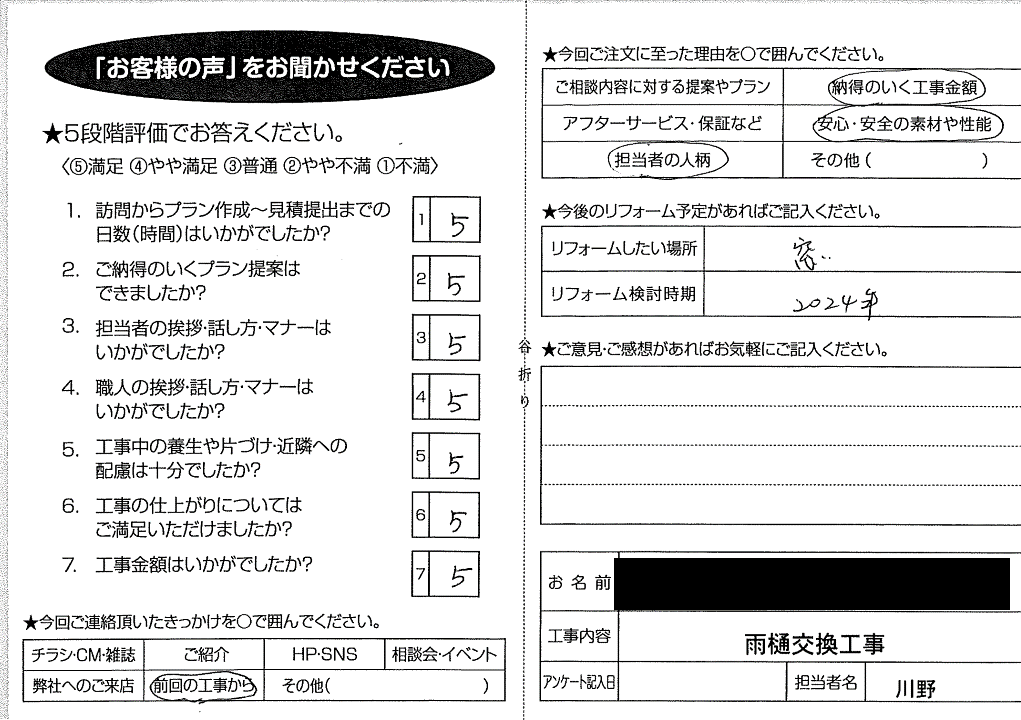 「お客様の声」をお聞かせください
★5段階評価でお答えください。
〈⑤満足 ④やや満足 ③普通 ②やや不満 ①不満〉
1. 訪問からプラン作成〜見積提出までの
日数(時間)はいかがでしたか?
1 5
2. ご納得のいくプラン提案は
できましたか?
2 5
3. 担当者の挨拶・話し方・マナーは
いかがでしたか?
3 5
4. 職人の挨拶・話し方・マナーは
いかがでしたか?
4 5
5. 工事中の養生や片づけ・近隣への
配慮は十分でしたか?
5 5
6. 工事の仕上がりについては
ご満足いただけましたか?
6 5
7. 工事金額はいかがでしたか?
7 5
★今回ご連絡頂いたきっかけを○で囲んでください。
チラシ・CM・雑誌 ご紹介 HP・SNS 相談会・イベント
弊社へのご来店 前回の工事から その他( )
谷折り
★今回ご注文に至った理由を○で囲んでください。
ご相談内容に対する提案やプラン 納得のいく工事金額
アフターサービス・保証など 安心・安全の素材や性能
担当者の人柄 その他( )
★今後のリフォーム予定があればご記入ください。
リフォームしたい場所 窓..
リフォーム検討時期 2024年
★ご意見・ご感想があればお気軽にご記入ください。
お名前
工事内容 雨樋交換工事
アンケート記入日 担当者名 川野